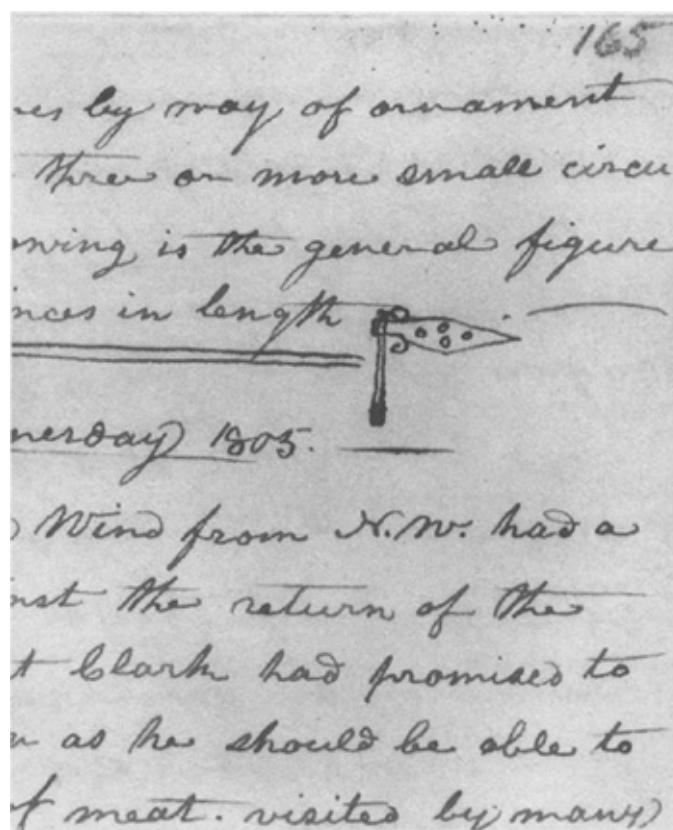 165
nes by way of ornament
three or more small circu
owing is the general figure
nces in length
nesday 1805.
Wind from N.W. had a
inst the return of the
t Clark had promised to
n as he should be able to
of meat. visited by many